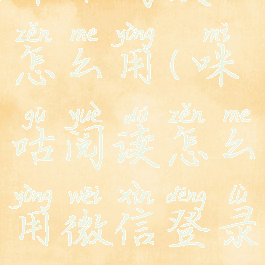 zěn me yòng mī
怎么用(咪
gū yuè dú zěn me
咕阅读怎么
yòng wēi xìn dēng lù
用微信登录